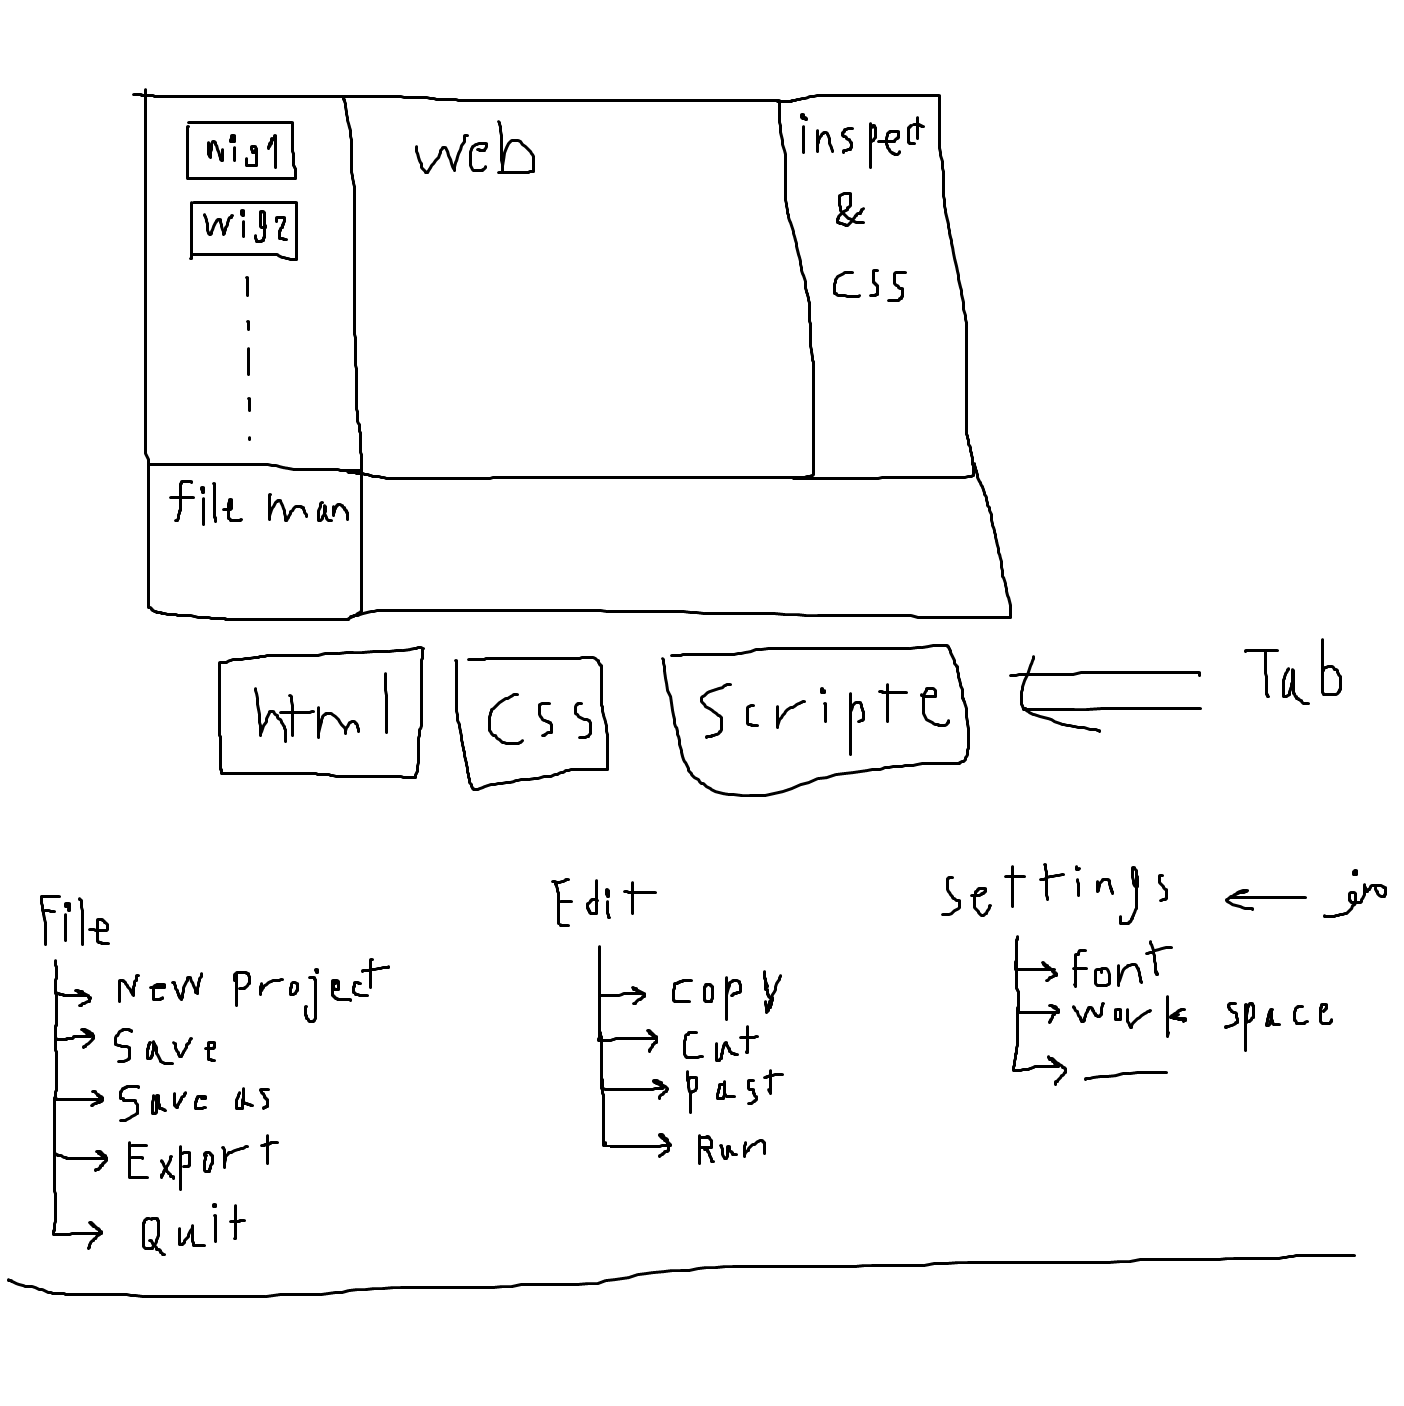 wig1
web
inspect
&
css
wig2
file man
html
css
Scripte
Tab
File
New Project
Save
Save as
Export
Quit
Edit
copy
cut
past
Run
settings
font
work space